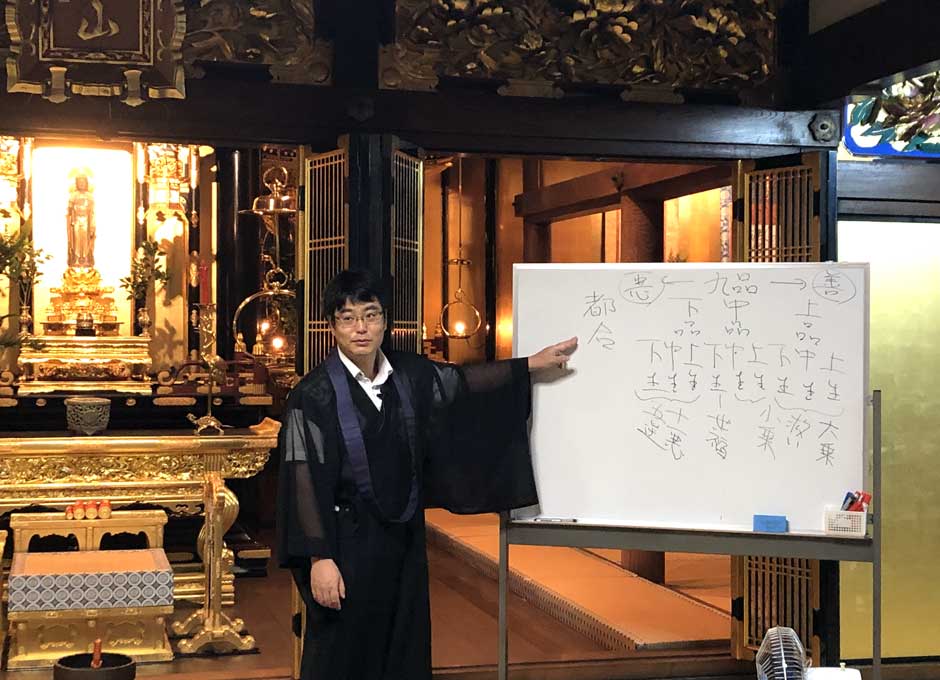 山
悪 ← 九品 → 善
上品
中品
下品
上生
中生
下生
上生
中生
下生
上生
中生
下生
大乗
小乗
世福
十悪
五逆
都